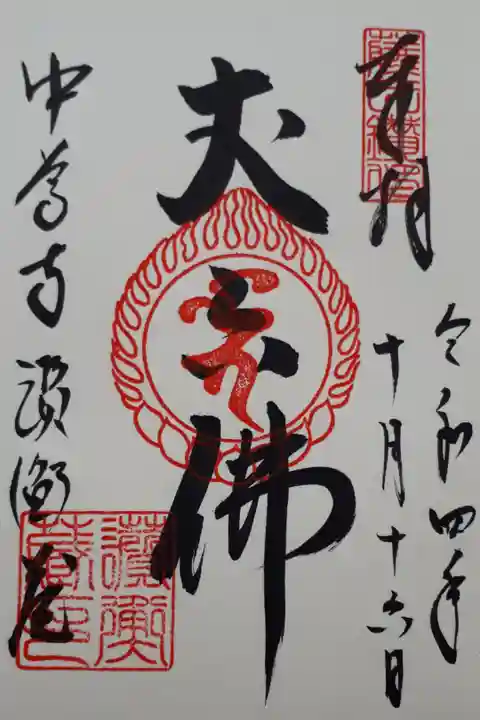 奉拝
令和四年
十月十六日
丈六佛
中尊寺 讃衡蔵
讃衡
蔵印